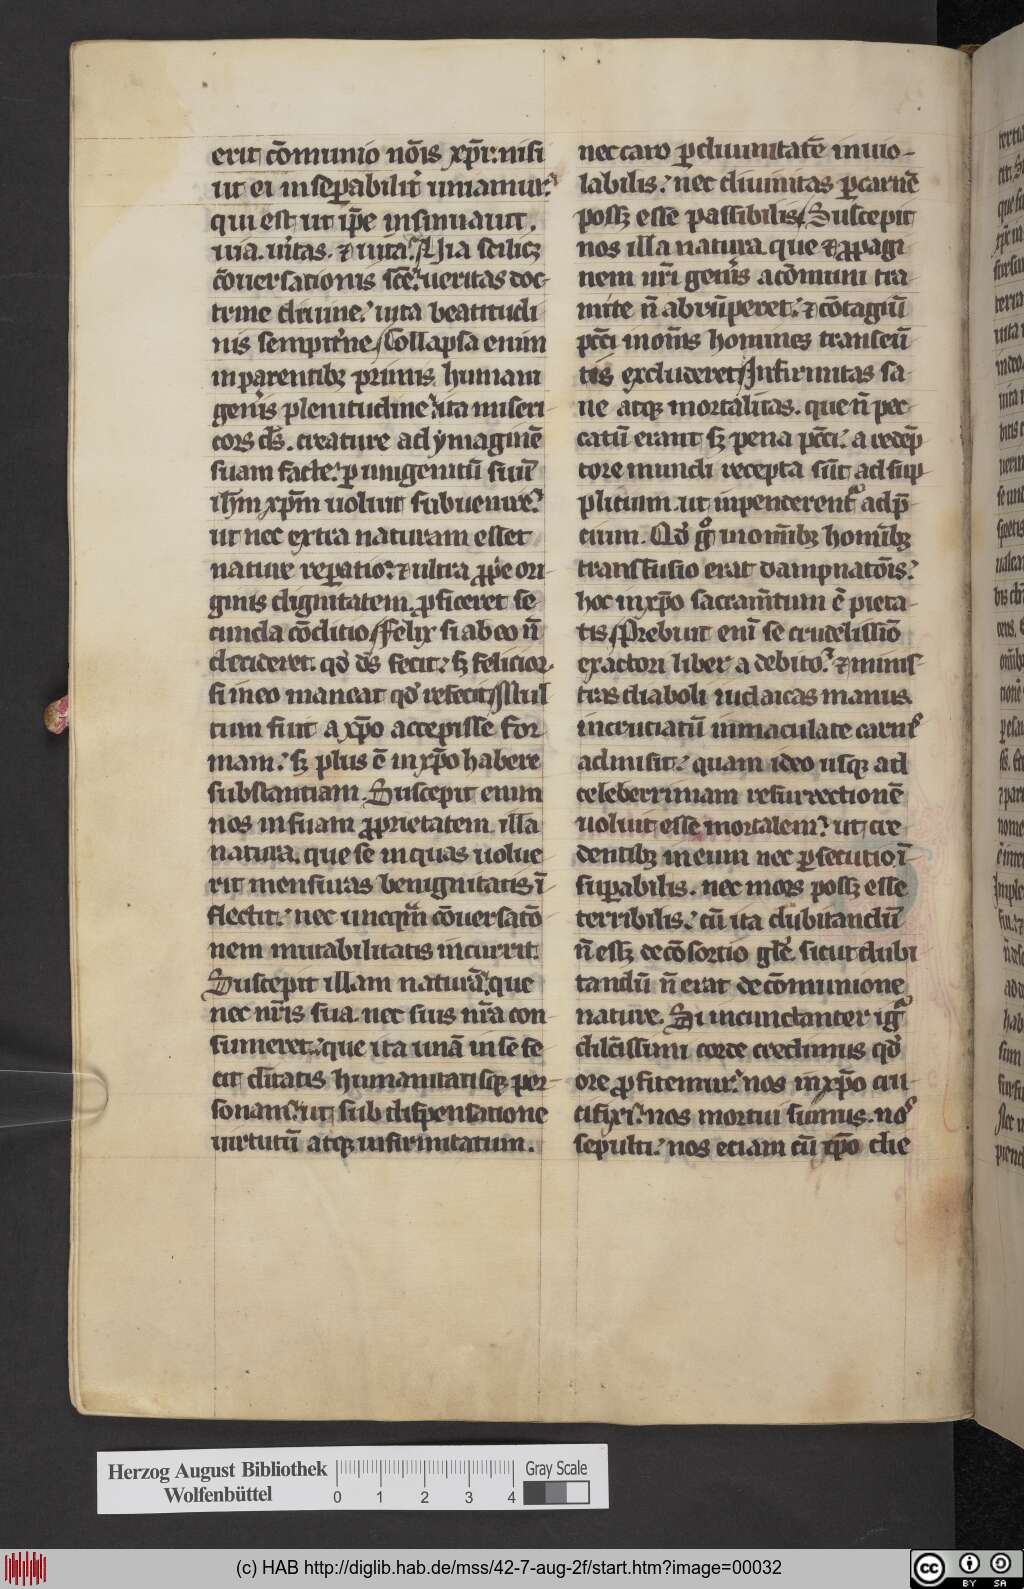 erit cōmunio nōis xp̄i: nisi
ut ei inseꝑabilit̉ uniamur:
qui est ut ip̄e insinuauit.
uia. u̾itas. ⁊ uita. Uia scilicꝫ
cōuersationis sc̄e: ueritas doc-
trine diuine: uita beatitudi
nis sempit̉ne. Collapsa enim
in parentibꝫ primis humani
gen̾is plenitudine: ita miseri
cors ds̄. creature ad ymaginē
suam facte: ꝑ unigenitū suū
ihm̄ xp̄m uoluit subuenire:
ut nec extra naturam esset
nature reꝑatio: ⁊ ultra ꝓp̄e ori
ginis dignitatem. ꝓficeret se-
cunda cōditio. Felix si ab eo n̄
decideret. qd̾ ds̄ fecit: sꝫ felicior
si in eo maneat qd̾ refecit. Mul
tum fuit a xp̄o accepisse for-
mam: sꝫ plus ē in xp̄o habere
substantiam. Suscepit enim
nos in suam ꝓprietatem illa
natura. que se in quas uolue
rit mensuras benignitatis ī-
flectit: nec uncqm̄ cōuersatō
nem mutabilitatis incurrit.
Suscepit illam naturā. que
nec nr̄is sua. nec suis nr̄a con-
sumeret: que ita unā in se fe
cit ditatis humanitatisqꝫ per-
sonam: ut sub dispensatione
uirtutū atqꝫ infirmitatum.
nec caro ꝑ diuinitatē inuio-
labilis: nec diuinitas ꝑ carnē
possꝫ esse passibilis. Suscepit
nos illa natura. que ⁊ ꝓpagi
nem nr̄i gen̾is a cōmuni tra
mite n̄ abrūperet: ⁊ cōtagiū
pcc̄i in om̄s homines transeū
tis excluderet. Infirmitas sa-
ne atqꝫ mortalitas. que n̄ pec-
catū erant sꝫ pena pcc̄i. a redēp
tore mundi recepta sūt ad sup-
plicium. ut inpenderent̉ ad p̄
cium. Qd̾ gͦ in om̄ibꝫ hom̄ibꝫ
transfusio erat dampnatōis:
hoc in xp̄o sacram̄tum ē pieta-
tis. Prebuit eni se crudelissīo
exactori liber a debito: ⁊ minis-
tras diaboli iudaicas manus.
in cruciatū inmaculate carnis
admisit: quam ideo usqꝫ ad
celeberrimam resurrectionē
uoluit esse mortalem: ut cre
dentibꝫ in eum nec ꝑsecutio ī-
suꝑabilis. nec mors possꝫ esse
terribilis: cū ita dubitandū
n̄ essꝫ de cōsortio gl̄e. sicut dubi
tandū n̄ erat de cōmunione
nature. Si incunctanter igͥ
dilc̄issimi corde credimus qd̾
ore ꝓfitemur: nos in xp̄o cru-
cifixi: nos mortui sumus. nos
sepulti: nos etiam cū xp̄o die
Herzog August Bibliothek
Wolfenbüttel
0 1 2 3 4
Gray Scale
(c) HAB http://diglib.hab.de/mss/42-7-aug-2f/start.htm?image=00032
cc BY SA